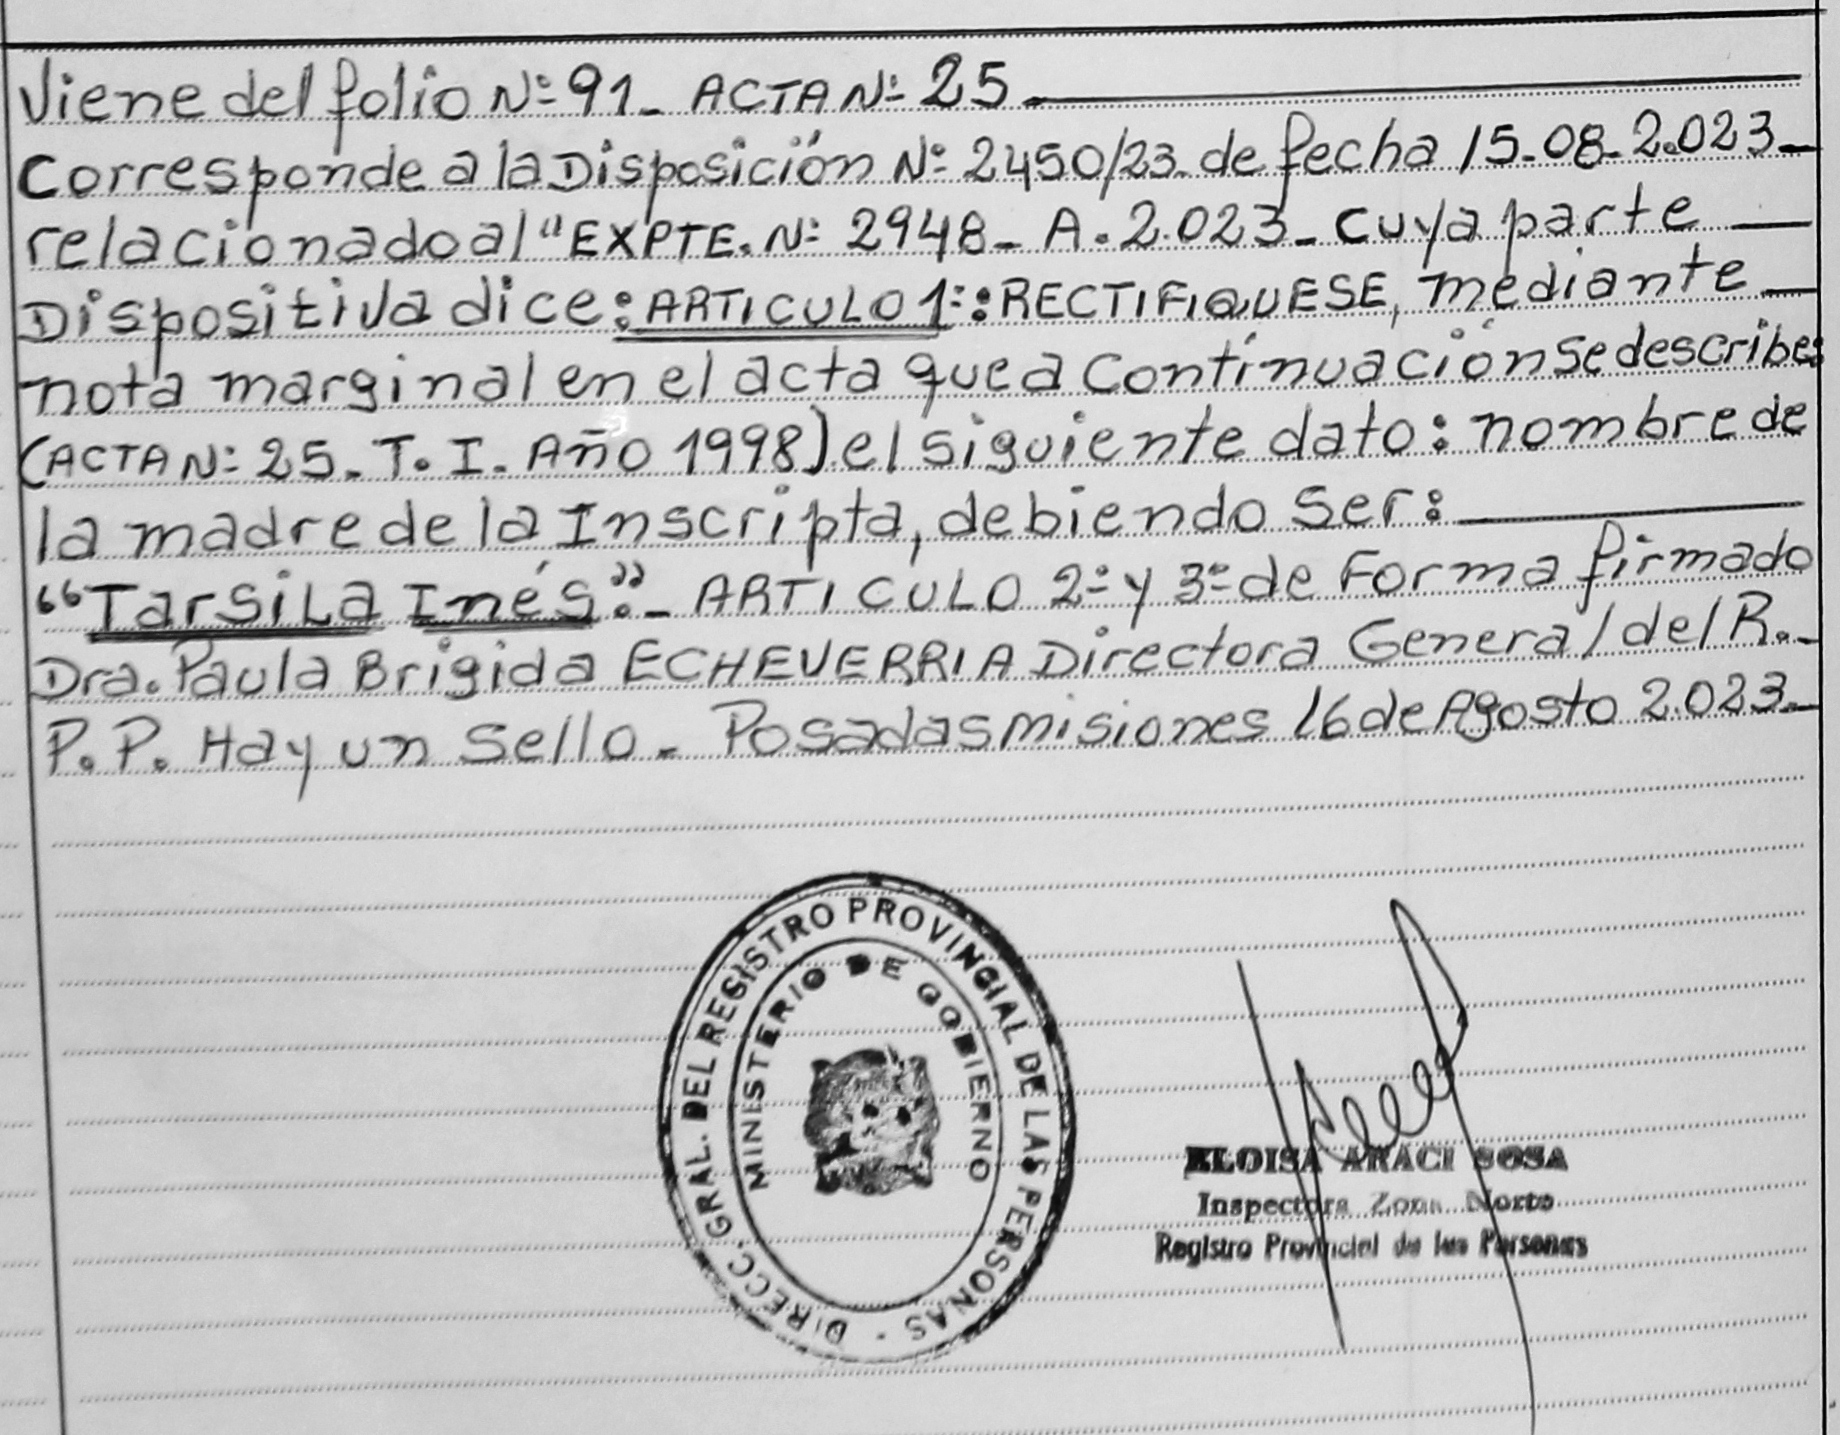 Viene del folio Nº 91- ACTA Nº 25-
Corresponde a la Disposición Nº 2450/23- de fecha 15-08-2.023-
relacionado al "EXPTE. Nº 2948- A. 2.023- cuya parte
Dispositiva dice: ARTICULO 1º: RECTIFIQUESE, mediante
nota marginal en el acta que a continuación se describe:
(ACTA Nº 25- T. I. Año 1998) el siguiente dato: nombre de
la madre de la Inscripta, debiendo ser:
"Tarsila Inés".- ARTICULO 2º y 3º de Forma firmado
Dra. Paula Brigida ECHEVERRIA Directora General del R.-
P. P. Hay un sello - Posadas misiones 16 de Agosto 2.023-
DIRECC. GRAL. DEL REGISTRO PROVINCIAL DE LAS PERSONAS -
MINISTERIO DE GOBIERNO
ELOISA ARACI SOSA
Inspectora Zona Norte
Registro Provincial de las Personas